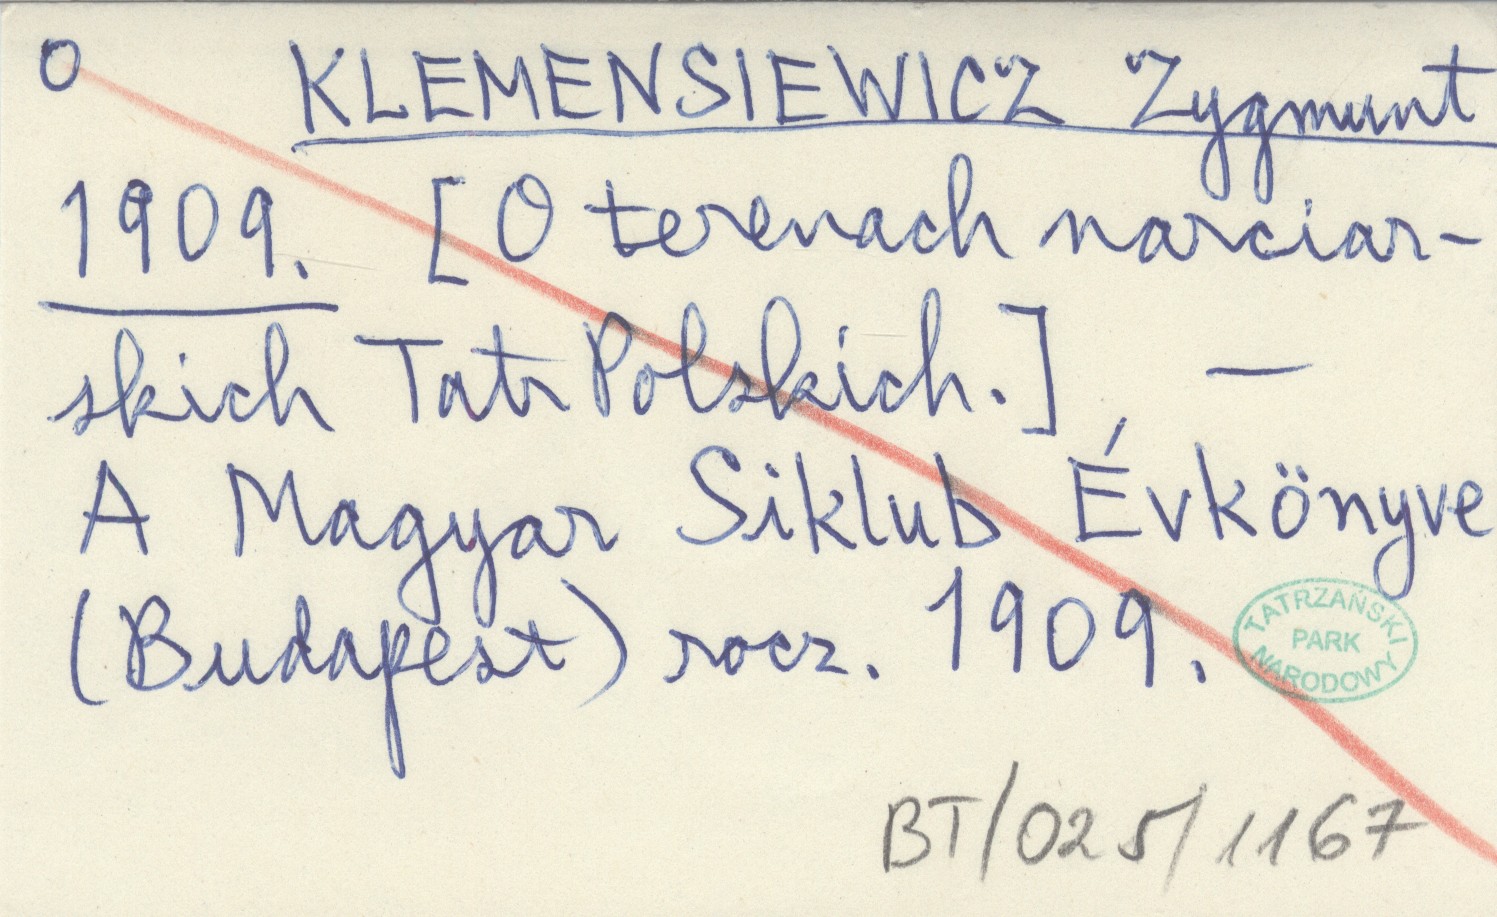 O KLEMENSIEWICZ Zygmunt
1909. [O terenach narciar-
skich Tatr Polskich.] —
A Magyar Siklub Évkönyve
(Budapest) rocz. 1909.
TATRZAŃSKI
PARK
NARODOWY
BT/025/1167